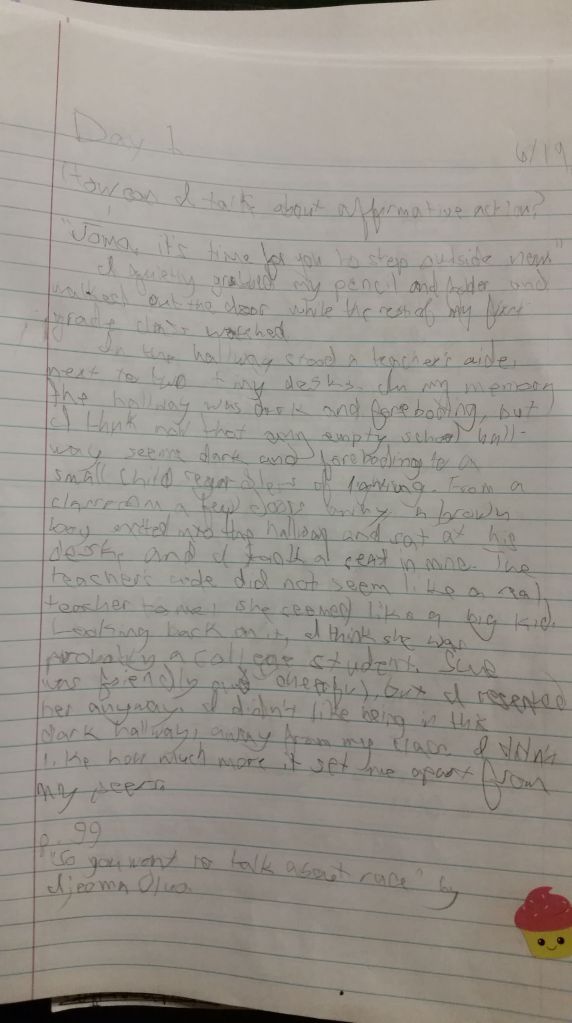 Day 1
6/19
How can I talk about affirmative action?
"Joma, it's time for you to step outside now"
I quietly grabbed my pencil and folder and
walked out the door while the rest of my first
grade class watched
In the hallway stood a teacher's aide,
next to two tiny desks. In my memory
the hallway was dark and foreboding, but
I think now that any empty school hall-
way seems dark and foreboding to a
small child regardless of lighting. From a
classroom a few doors a brown
boy exited into the hallway and sat at his
desk, and I took a seat in mine. The
teacher's aide did not seem like a real
teacher to me, she seemed like a big kid.
Looking back on it, I think she was
probably a college student. She
was friendly and cheerful, but I resented
her anyway. I didn't like being in this
dark hallway, away from my class I didn't
like how much more it set me apart from
my peers
p. 99
"So you want to talk about race" by
Ijeoma Oluo